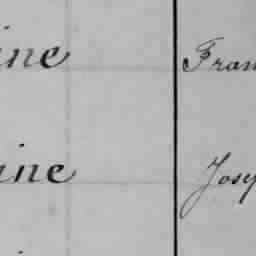 ine Fran
ine Josep